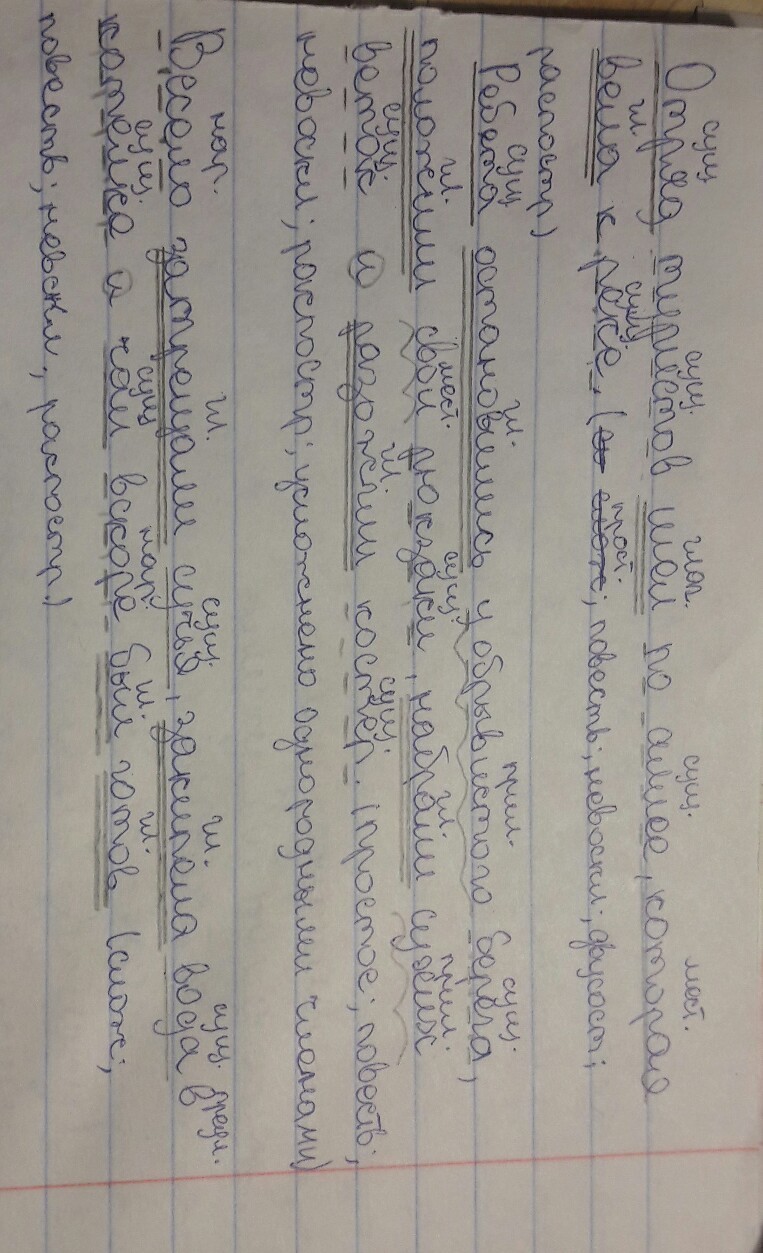 сущ сущ. глаг. сущ. мест.
Отряд туристов шел по аллее, которая
гл. сущ. прост.
вела к реке. ( ; повеств.; невоскл.; двусост.;
распостр)
сущ гл. прил. сущ.
Ребята остановились у обрывистого берега,
гл. мест. сущ. гл. прил.
положили свои рюкзаки, набрали сухих
сущ. гл. сущ.
веток и разожгли костер. (простое; повеств.;
невоскл; распостр; усложнено однородными членами)
нар. гл. сущ. гл. сущ. предл.
Весело затрещали сучья, закипела вода в
сущ. сущ нар гл. гл.
котелке и чай вскоре был готов (слож;
повеств; невскл, распостр.)